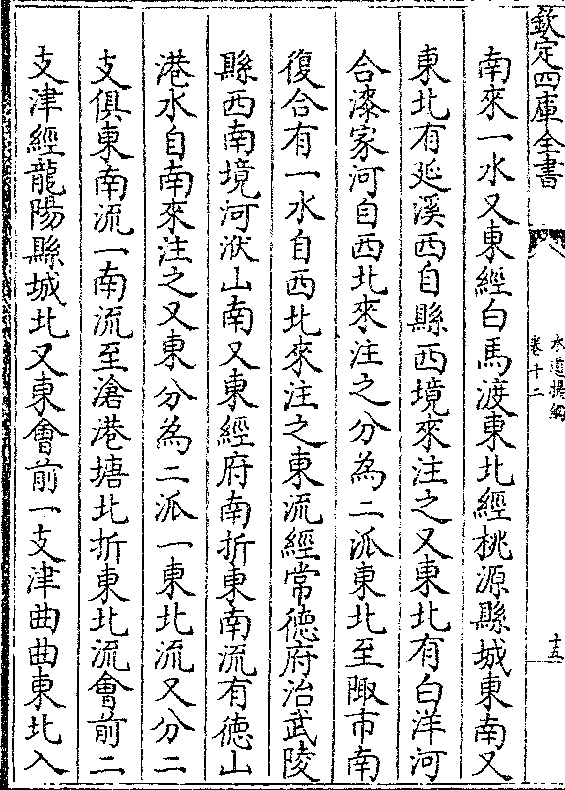 欽定四庫全書
水道提綱
卷十二
十五
南來一水又東經白馬渡東北經桃源縣城東南又
東北有延溪西自縣西境來注之又東北有白洋河
合漆家河自西北來注之分為二派東北至陬市南
復合有一水自西北來注之東流經常德府治武陵
縣西南境河洑山南又東經府南折東南流有德山
港水自南來注之又東分為二派一東北流又分二
支俱東南流一南流至滄港塘北折東北流會前二
支津經龍陽縣城北又東會前一支津曲曲東北入